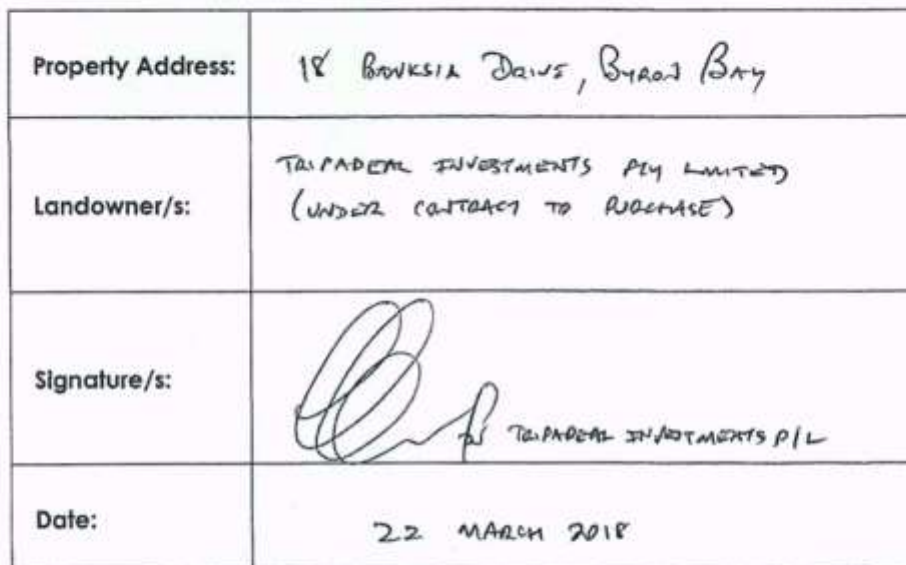 Property Address:
18 BANKSIA DRIVE, BYRON BAY
Landowner/s:
TRIPADEAL INVESTMENTS PTY LIMITED
(UNDER CONTRACT TO PURCHASE)
Signature/s:
TRIPADEAL INVESTMENTS P/L
Date:
22 MARCH 2018